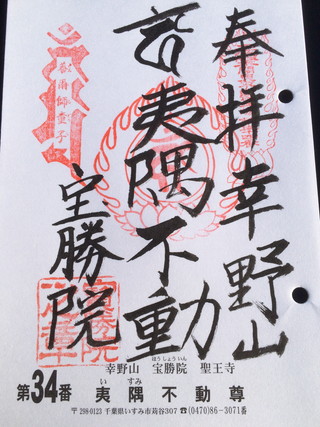 奉拝 幸野山
夷隅不動
宝勝院
幸野山 宝勝院 聖王寺
ほうしょういん
第34番 夷隅不動尊
いすみ
〒298-0123 千葉県いすみ市苅谷307 ☎(0470)86-3071番